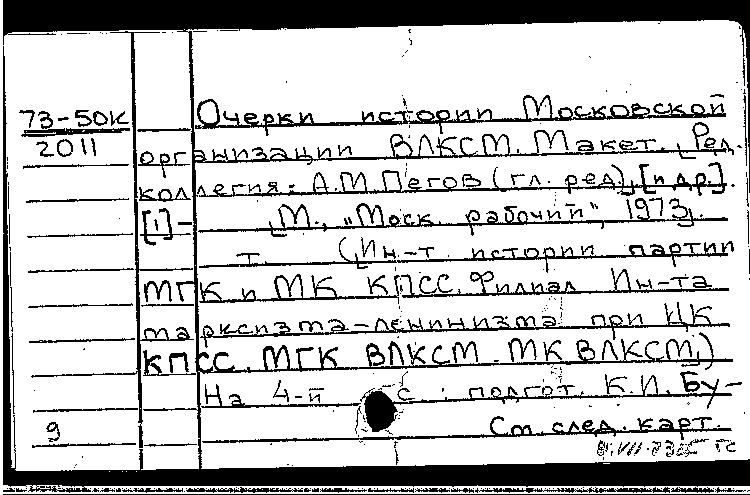 73-50К Очерки истории Московской
2011 организации ВЛКСМ. Макет. [Ред.
коллегия: А.М. Пегов (гл. ред), [и др.].
[1]- [М., "Моск. рабочий", 1973].
т. ([Ин-т истории партии
МГК и МК КПСС. Филиал Ин-та
марксизма-ленинизма при ЦК
КПСС. МГК ВЛКСМ. МК ВЛКСМ])
На 4-й с: подгот. К.И. Бу-
9 См. след. карт.